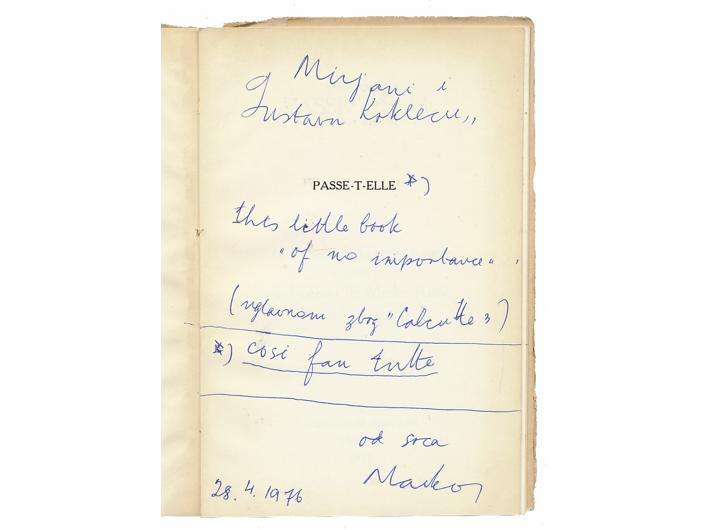 Mirjani i
Gustavu Krklecu,,
PASSE-T-ELLE *)
this little book
"of no importance".
(uglavnom zbog "Calcutte 3)
*) così fan tutte
od srca
Marko
28. 4. 1976